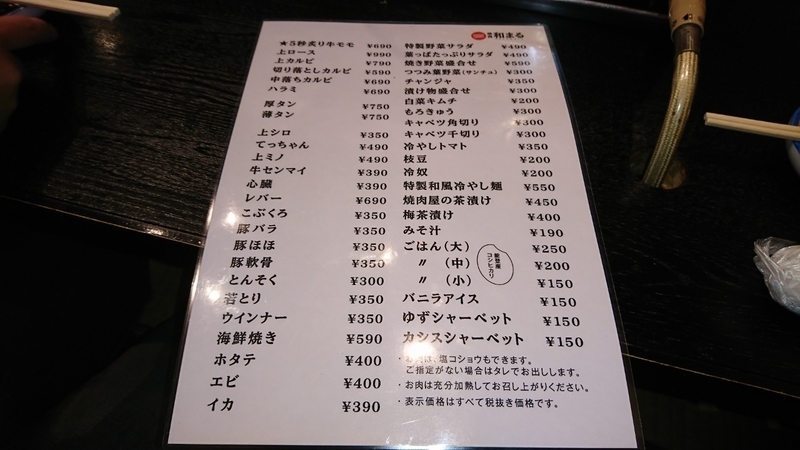 和まる
★5秒炙り牛モモ ¥690
上ロース ¥990
上カルビ ¥790
切り落としカルビ ¥590
中落ちカルビ ¥690
ハラミ ¥690
厚タン ¥750
薄タン ¥750
上シロ ¥350
てっちゃん ¥490
上ミノ ¥490
牛センマイ ¥390
心臓 ¥390
レバー ¥690
こぶくろ ¥350
豚バラ ¥350
豚ほほ ¥350
豚軟骨 ¥350
とんそく ¥300
若とり ¥350
ウインナー ¥350
海鮮焼き ¥590
ホタテ ¥400
エビ ¥400
イカ ¥390
特製野菜サラダ ¥490
葉っぱたっぷりサラダ ¥490
焼き野菜盛合せ ¥590
つつみ葉野菜(サンチュ) ¥300
チャンジャ ¥350
漬け物盛合せ ¥300
白菜キムチ ¥200
もろきゅう ¥300
キャベツ角切り ¥300
キャベツ千切り ¥300
冷やしトマト ¥350
枝豆 ¥200
冷奴 ¥200
特製和風冷やし麺 ¥550
焼肉屋の茶漬け ¥450
梅茶漬け ¥400
みそ汁 ¥190
ごはん(大) ¥250
〃 (中) ¥200
〃 (小) ¥150
能登産
コシヒカリ
バニラアイス ¥150
ゆずシャーベット ¥150
カシスシャーベット ¥150
・お肉は、塩コショウもできます。
ご指定がない場合はタレでお出しします。
・お肉は充分加熱してお召し上がりください。
・表示価格はすべて税抜き価格です。